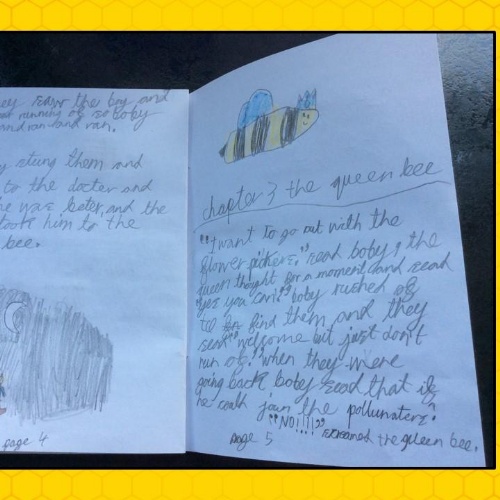 ey saw the boy and
running of so boby
and ran and ran.
y stung them and
to the docter and
he was beter, and the
took him to the
bee.
page 4
chapter 3 the queen bee
"I want to go out with the
flower pickers." sead boby, the
queen thought for a moment, and sead
"yes you can!" boby rushed of
to find them and they
sead "welcome but just don't
run of." when they were
going back boby sead that if
he coulh join the pollunaters.
"NO!!!!" screamed the queen bee.
page 5